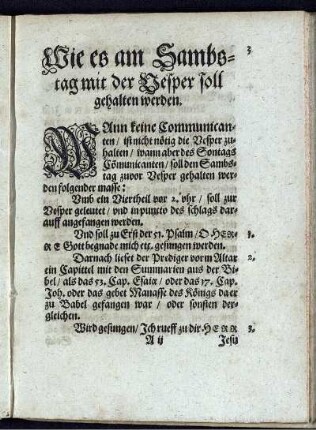 Wie es am Sambs- 3
tag mit der Vesper soll
gehalten werden.
WAnn keine Communican-
ten / ist nicht nötig die Vesper zu-
halten / wann aber des Sontags
Cōmunicanten / soll den Sambs-
tag zuvor Vesper gehalten wer-
den folgender masse:
Vmb ein Viertheil vor 2. vhr / soll zur
Vesper geleutet / vnd in puncto des schlags dar-
auff angefangen werden.
Vnd soll zu Erst der 51. Psalm / O HER- 1.
RE Gott begnade mich etc. gesungen werden.
Darnach lieset der Prediger vorm Altar 2.
ein Capittel mit den Summarien aus der Bi-
bel / als das 53. Cap. Esaiæ / oder das 17. Cap.
Joh. oder das gebet Manasse des Königs da er
zu Babel gefangen war / oder sonsten der-
gleichen.
Wird gesungen / Ich rueff zu dir HERR 3.
A ij Jesu